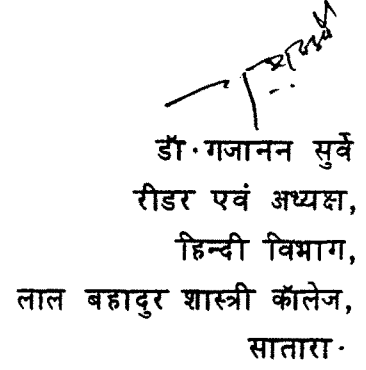 डॉ. गजानन सुर्वे
रीडर एवं अध्यक्ष,
हिन्दी विभाग,
लाल बहादुर शास्त्री कॉलेज,
सातारा.